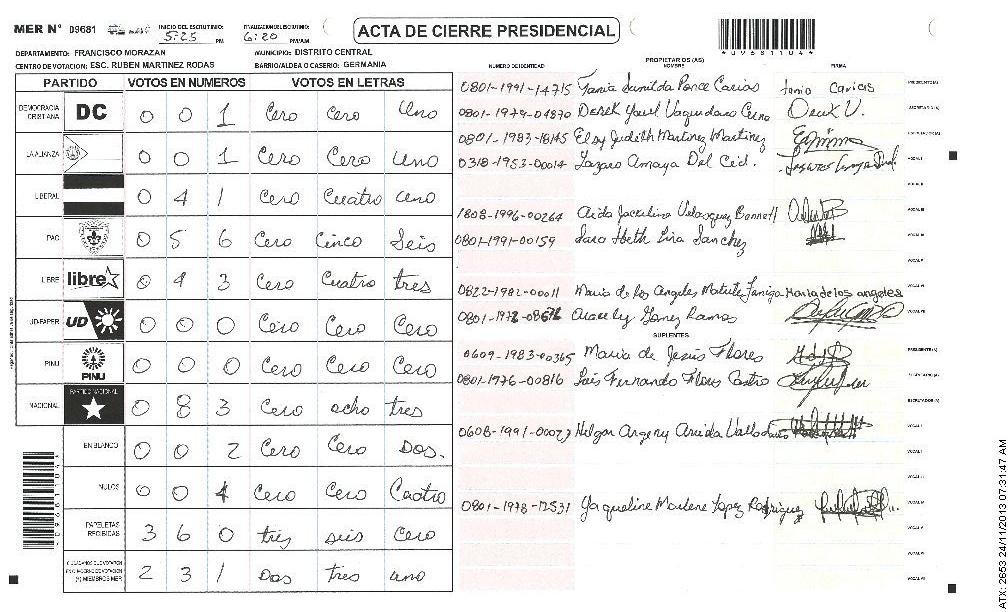 MER N° 09681 INICIO DEL ESCRUTINIO: 5:25 PM FINALIZACION DEL ESCRUTINIO: 6:20 PM/AM ACTA DE CIERRE PRESIDENCIAL
*09681104*
DEPARTAMENTO: FRANCISCO MORAZAN MUNICIPIO: DISTRITO CENTRAL
CENTRO DE VOTACION: ESC. RUBEN MARTINEZ RODAS BARRIO/ALDEA O CASERIO: GERMANIA
PARTIDO VOTOS EN NUMEROS VOTOS EN LETRAS
DEMOCRACIA CRISTIANA DC 0 0 1 Cero Cero Uno
LA ALIANZA 0 0 1 Cero Cero uno
LIBERAL 0 4 1 Cero Cuatro uno
PAC 0 5 6 Cero Cinco Seis
LIBRE libre 0 4 3 Cero Cuatro tres
UD-FAPER UD 0 0 0 Cero Cero Cero
PINU PINU 0 0 0 Cero Cero Cero
NACIONAL PARTIDO NACIONAL 0 8 3 Cero ocho tres
EN BLANCO 0 0 2 Cero Cero Dos.
NULOS 0 0 4 Cero Cero Cuatro
PAPELETAS RECIBIDAS 3 6 0 tres seis Cero
2 3 1 Dos tres uno
(*) MIEMBROS MER
PROPIETARIOS (AS)
NUMERO DE IDENTIDAD NOMBRE FIRMA
0801-1991-14715 Tania Ponce Carias tania carias PRESIDENTE(A)
0801-1979-04870 Derek Yavel Vaquedano SECRETARIO(A)
0801-1983-18145 Elsy Judith Martinez Martinez ESCRUTADOR(A)
0318-1953-00014 Lazaro Amaya Del Cid. VOCAL I
VOCAL II
1808-1996-00264 Aida Jackelina Velasquez Bonnett VOCAL III
0801-1991-00159 Sara Ibeth Lira Sanchez VOCAL IV
VOCAL V
0822-1982-00011 Maria de los Angeles Matute Maria de los angeles VOCAL VI
Aracely Gomez Ramos VOCAL VII
SUPLENTES
0609-1983-00365 Maria de Jesus Flores PRESIDENTE(A)
0801-1976-00816 Luis Fernando Flores Castro SECRETARIO(A)
ESCRUTADOR(A)
Argeny VOCAL I
VOCAL II
VOCAL III
0801-1978-12531 Yaqueline Marlene Lopez Rodriguez VOCAL IV
VOCAL V
VOCAL VI
VOCAL VII
ATX: 2653 24/11/2013 07:31:47 AM